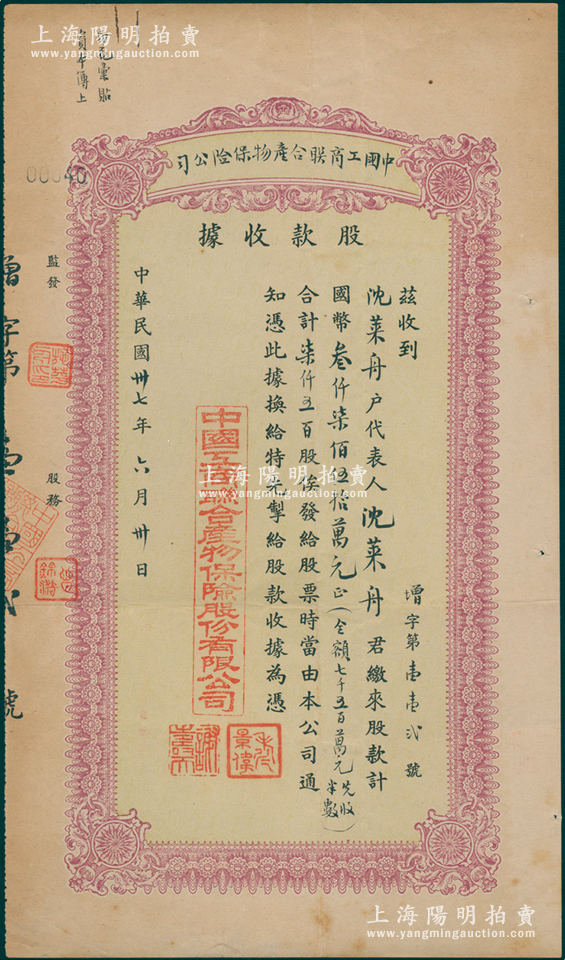 上海陽明拍賣
www.yangmingauction.com
中國工商联合產物保險公司
00040
股款收據
增字第壹壹弍號
茲收到
沈萊舟户代表人沈萊舟君繳來股款計
國幣叁仟柒佰五拾萬元正(全額七千五百萬元先收半數)
合計柒仟五百股俟發給股票時當由本公司通
知憑此據換給特先掣給股款收據為憑
中國工商聯合產物保險股份有限公司
中華民國卅七年六月卅日
監發
股務
增字第
號
上海陽明拍賣
www.yangmingauction.com
上海陽明拍賣
www.yangmingauction.com